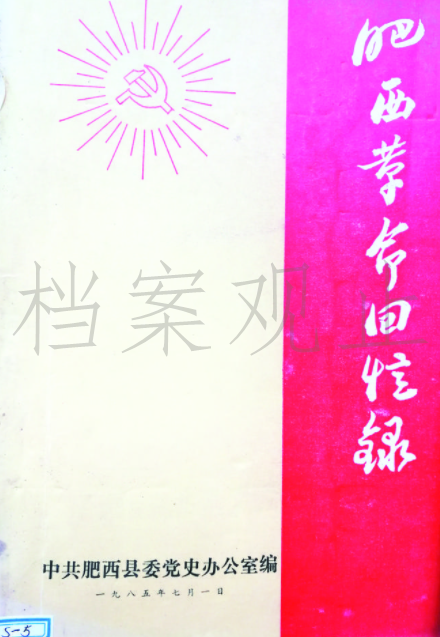 肥西革命回忆录
档案观止
中共肥西县委党史办公室编
一九八五年七月一日
S-5